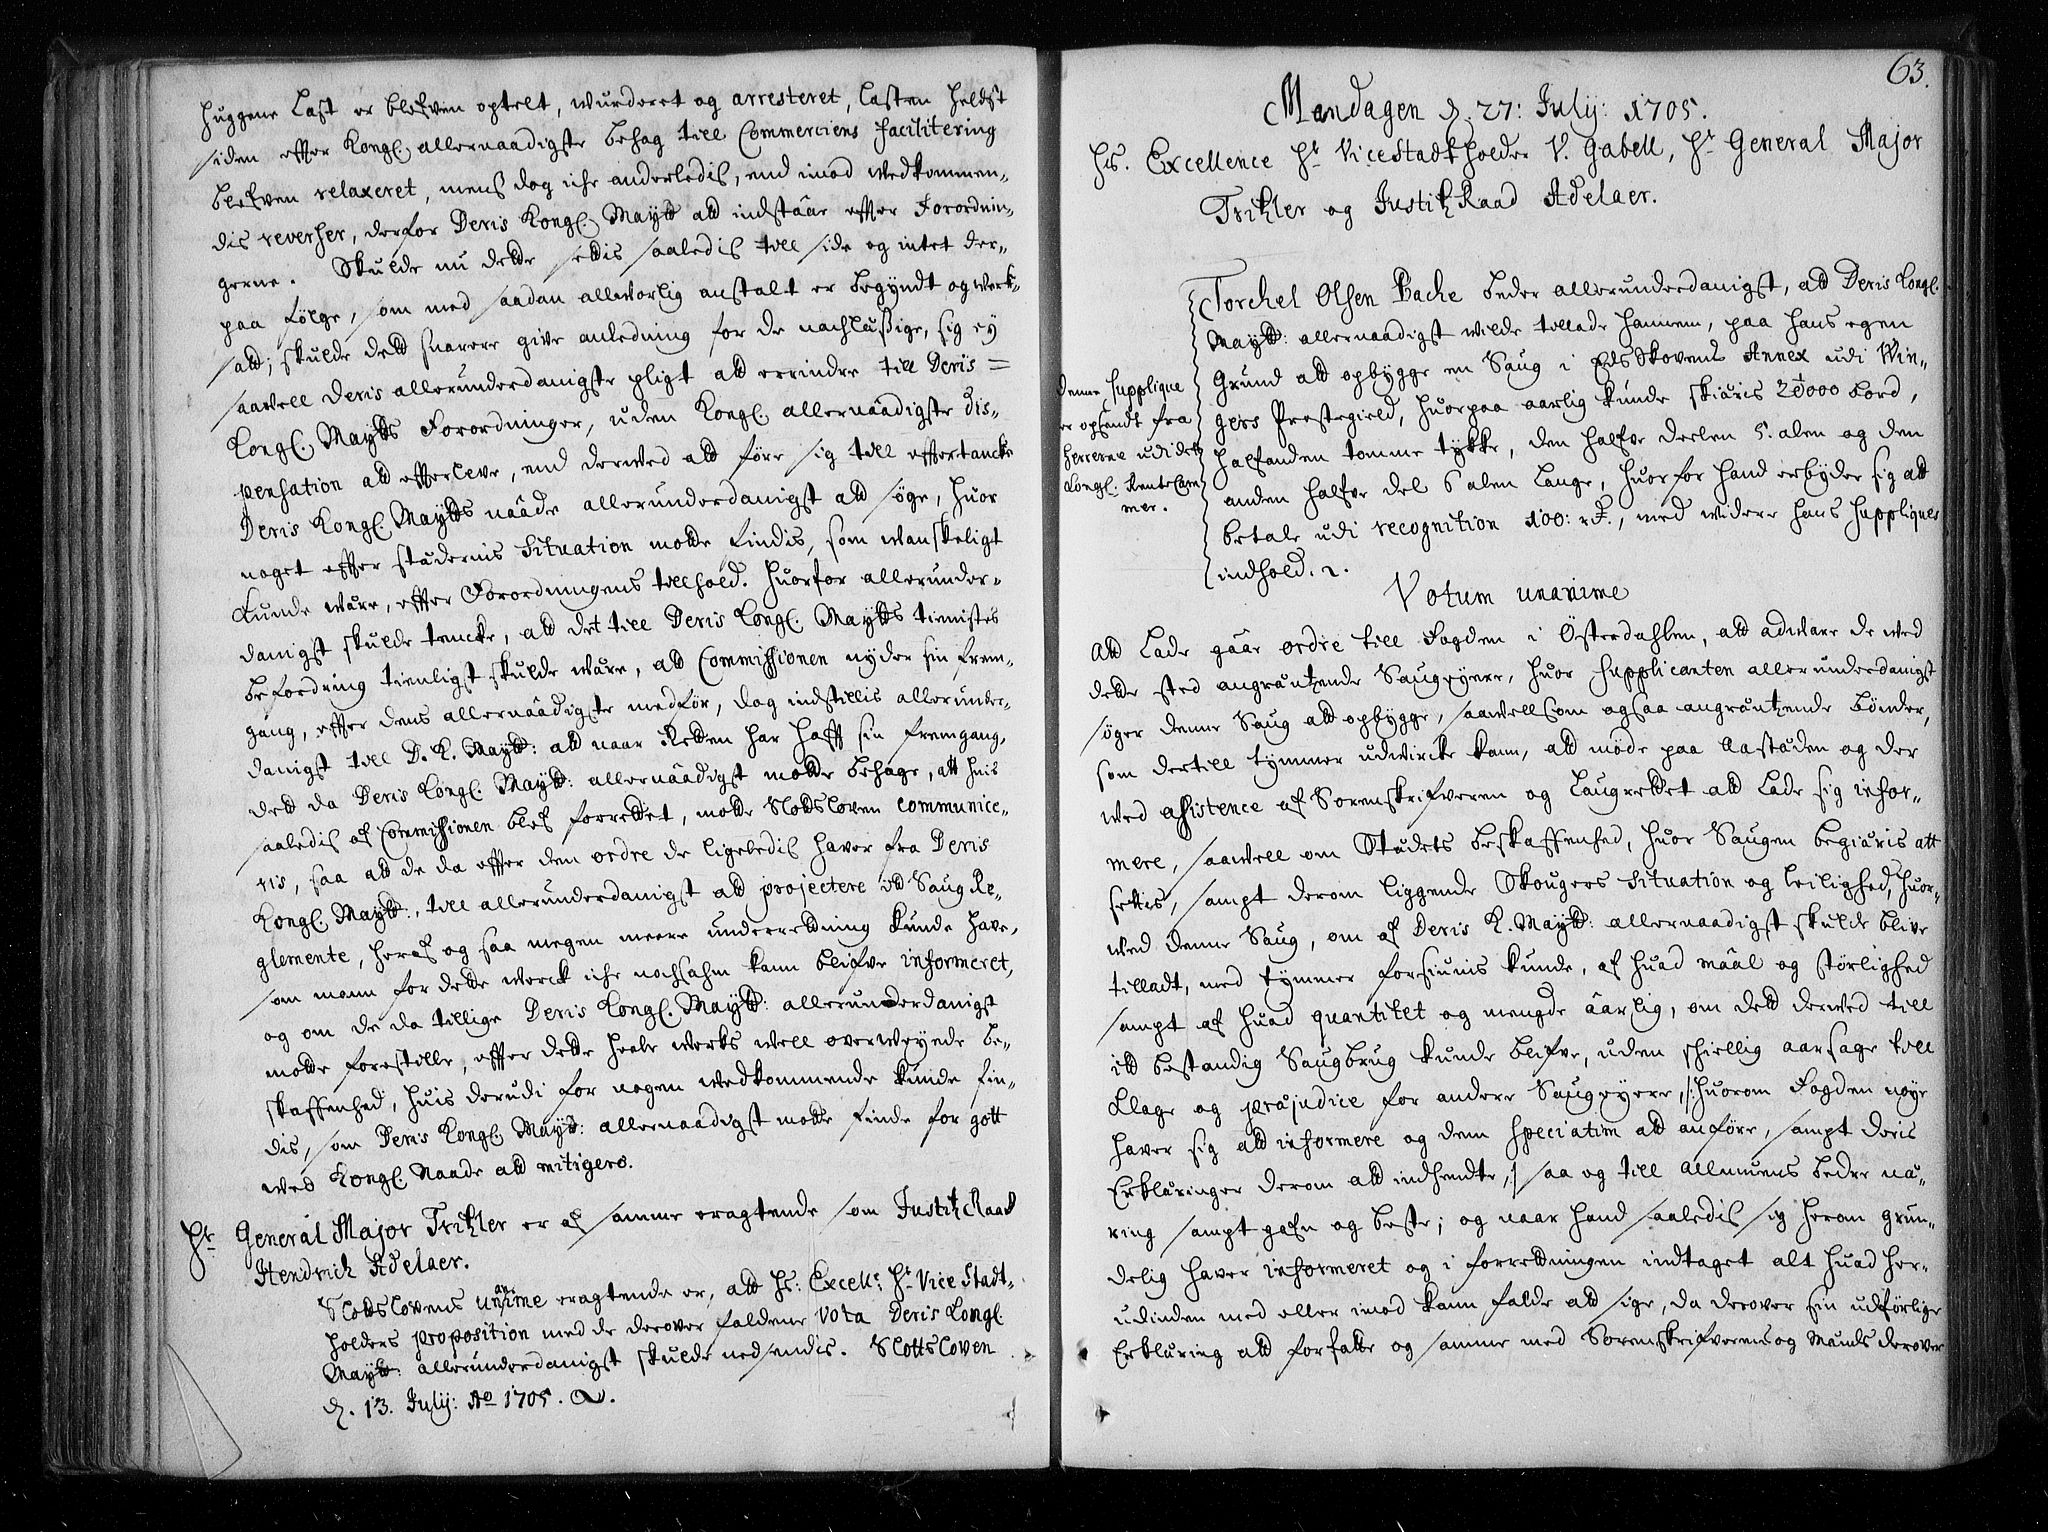 huggene Last er blefven optelt, wurderet og arresteret, Lasten heldst
siden effter Kongl. allernaadigste behag till Commerciens facilitering
blefven relaxeret, mens dog iche anderledis, end imod wedkommen-
dis reverser, derfor Deris Kongl. Maytt att indstaar effter Forordnin-
gerne. Skulde nu dette settis saaledis till side og intet der-
paa følge, som med saadan alleworlig anstalt er begyndt og werk-
satt; skulde dett snarere give anledning for de nachlussige, sig ey
saavell Deris allerunderdanigste pligt att erindre till Deris =
Kongl. Maytts Forordninger, uden Kongl. allernaadigste dis-
pensation att effterleve, end derved att føre sig till effterancke
Deris Kongl. Maytts naade allerunderdanigst att søge, huor
noget effter stædernis Situation motte findis, som wanskeligt
kunde wære, effter Forordningens tillhold. Huorfor allerunder-
danigst skulde tencke, att det till Deris Kongl. Maytts tienistes
befordring tienligst skulde wære, att Commissionen nyder sin frem-
gang, effter dens allernaadigste medfør, dog indstillis allerunder-
danigst till D. K. Maytt: att naar Retten har hafft sin fremgang,
dett da Deris Kongl. Maytt: allernaadigst motte behage, att huis
saaledis af Commissionen blef forrettet, motte Slottsloven communice-
ris, saa att de da effter den ordre de ligeledis haver fra Deris
Kongl. Maytt:, till allerunderdanigst att projectere itt Saug Re-
glemente, heraf og saa megen meere underretning kunde have,
som mann for dette werck iche nochsahm kann blifve informeret,
og om de da tillige Deris Kongl. Maytt: allerunderdanigst
motte forestille, effter dette heele werks well overweyede be-
skaffenhed, huis derudi for nogen wedkommende kunde fin-
dis, som Deris Kongl. Maytt: allernaadigst motte finde for gott
wed Kongl. Naade att mitigere.
Hr General Major Trihler er af samme eragtende som Justitz Raad
Hendrich Adelaer.
Slottslovens unanime eragtende er, att Hs: Excell: Hr Vice Stadt-
holders proposition med de derover faldene Vota Deris Kongl
Maytt: allerunderdanigst skulde nedsendis. Slottsloven
d. 13. Julij: Ao 1705.
63.
Mandagen d. 27: Julij: 1705.
Hs. Excellence Hr ViceStadtholder V. Gabell, Hr General Major
Trihler og Justitz Raad Adelaer.
Torchel Olsen Bache beder allerunderdanigst, att Deris Kongl.
Maytt: allernaadigst wilde tillade hannem, paa hans egen
Grund att opbygge en Saug i Eds Skovens Annex udi Win-
gers Prestegield, huorpaa aarlig kunde skiæris 25000 bord,
halfanden tomme tykke, den halfve deelen 5. alen og den
anden halfve del 6 alen lange, huorfor hand erbyder sig att
betale udi recognition 100: rd., med widere hans Suppliques
indhold.
denne Supplique
er opsendt fra
Herrerne udi dett
Kongl. RenteCam
mer.
Votum unanime
Att lade gaar ordre till Fogden i Østerdahlen, att advare de wed
dette sted angræntzende Saugeyere, huor Supplicanten allerunderdanigst
søger denne Saug att opbygge, saavellsom ogsaa angræntzende bønder,
som dertill tymmer udwircke kann, att møde paa aastæden og der
wed assistence af Sorenskrifveren og Laugrettet att lade sig infor-
mere, saavell om Stædets beskaffenhed, huor Saugen begiæris att
settis, sampt derom liggende Skougers Situation og leilighed, huor-
wed denne Saug, om af Deris K. Maytt: allernaadigst skulde blive
tilladt, med tymmer forsiunis kunde, af huad maal og størlighed
sampt af huad quantitet og mengde aarlig, om dett derwed till
itt bestandig Saugbrug kunde blifve, uden skiellig aarsage till
Klage og præjudice for andere Saugeyere, /: huorom Fogden nøye
haver sig att informere og dem Speciatim att anføre, sampt deris
Erklæringer derom att indhendte, :/ saa og till allmuens bedre næ-
ring sampt gafn og beste; og naar hand saaledis sig herom grun-
delig haver informeret og i forretningen indtaget alt huad her-
udinden med eller imod kann falde att sige, da derover sin udførlige
Erklæring att forfatte og samme med Sorenskrifverens og Mends derover